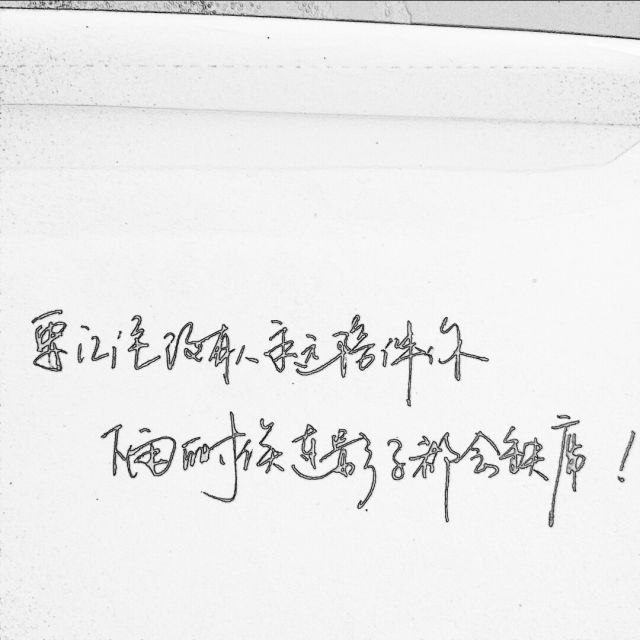 要记住没有人永远陪伴你
下雨时候连影子都会缺席!